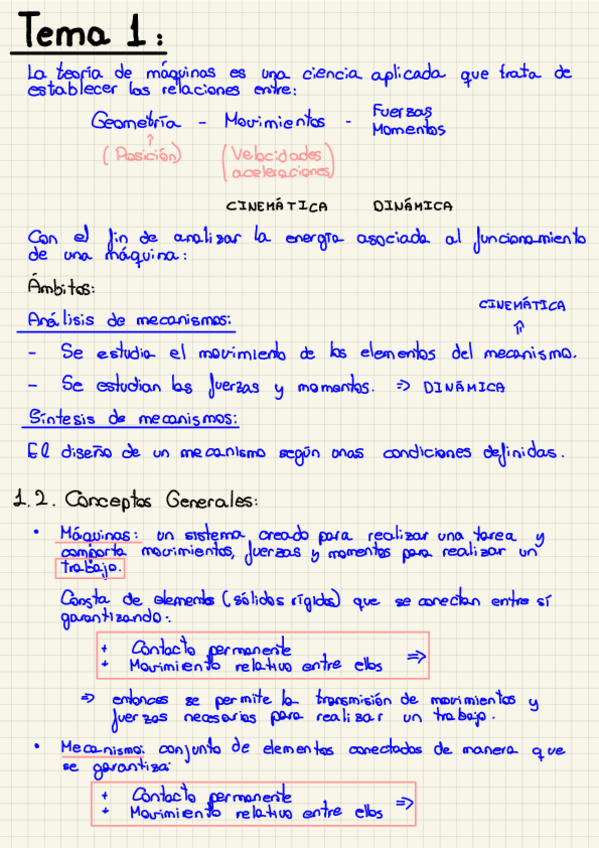 Tema 1:
La teoría de máquinas es una ciencia aplicada que trata de
establecer las relaciones entre:
Geometría - Movimientos - Fuerzas
Momentos
(Posición) (Velocidades
aceleraciones)
CINEMÁTICA DINÁMICA
Con el fin de analizar la energía asociada al funcionamiento
de una máquina:
Ámbitos:
CINEMÁTICA
Análisis de mecanismos: ⇑
- Se estudia el movimiento de los elementos del mecanismo.
- Se estudian las fuerzas y momentos. ⇒ DINÁMICA
Síntesis de mecanismos:
El diseño de un mecanismo según unas condiciones definidas.
1.2. Conceptos Generales:
• Máquinas: un sistema creado para realizar una tarea y
comporta movimientos, fuerzas y momentos para realizar un
trabajo.
Consta de elementos (sólidos rígidos) que se conectan entre sí
garantizando:
+ Contacto permanente
+ Movimiento relativo entre ellos ⇒
⇒ entonces se permite la transmisión de movimientos y
fuerzas necesarias para realizar un trabajo.
• Mecanismo: conjunto de elementos conectados de manera que
se garantiza:
+ Contacto permanente
+ Movimiento relativo entre ellos ⇒